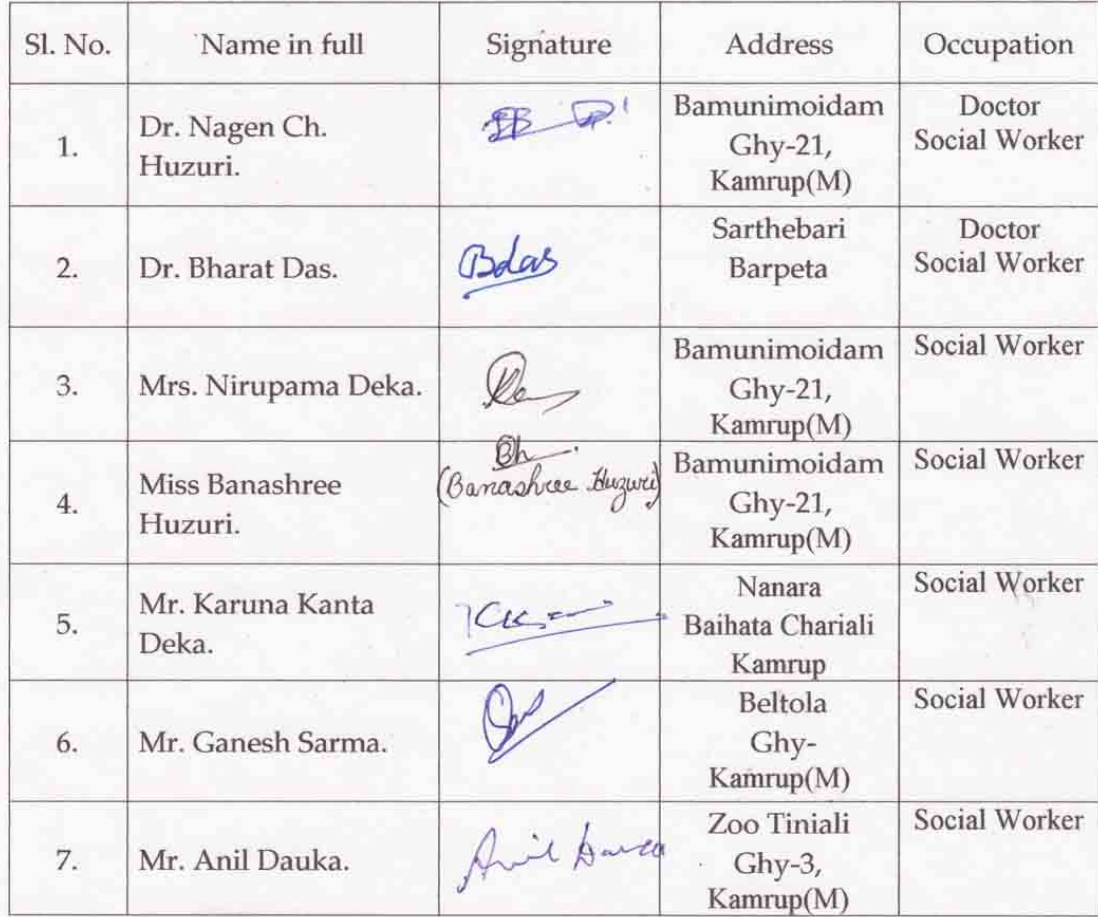 Sl. No. Name in full Signature Address Occupation
1. Dr. Nagen Ch.
Huzuri.
Bamunimoidam
Ghy-21,
Kamrup(M)
Doctor
Social Worker
2. Dr. Bharat Das.
Bdas
Sarthebari
Barpeta
Doctor
Social Worker
3. Mrs. Nirupama Deka.
Bamunimoidam
Ghy-21,
Kamrup(M)
Social Worker
4. Miss Banashree
Huzuri.
Bh
(Banashree Huzuri)
Bamunimoidam
Ghy-21,
Kamrup(M)
Social Worker
5. Mr. Karuna Kanta
Deka.
Nanara
Baihata Chariali
Kamrup
Social Worker
6. Mr. Ganesh Sarma.
Beltola
Ghy-
Kamrup(M)
Social Worker
7. Mr. Anil Dauka.
Anil
Zoo Tiniali
Ghy-3,
Kamrup(M)
Social Worker